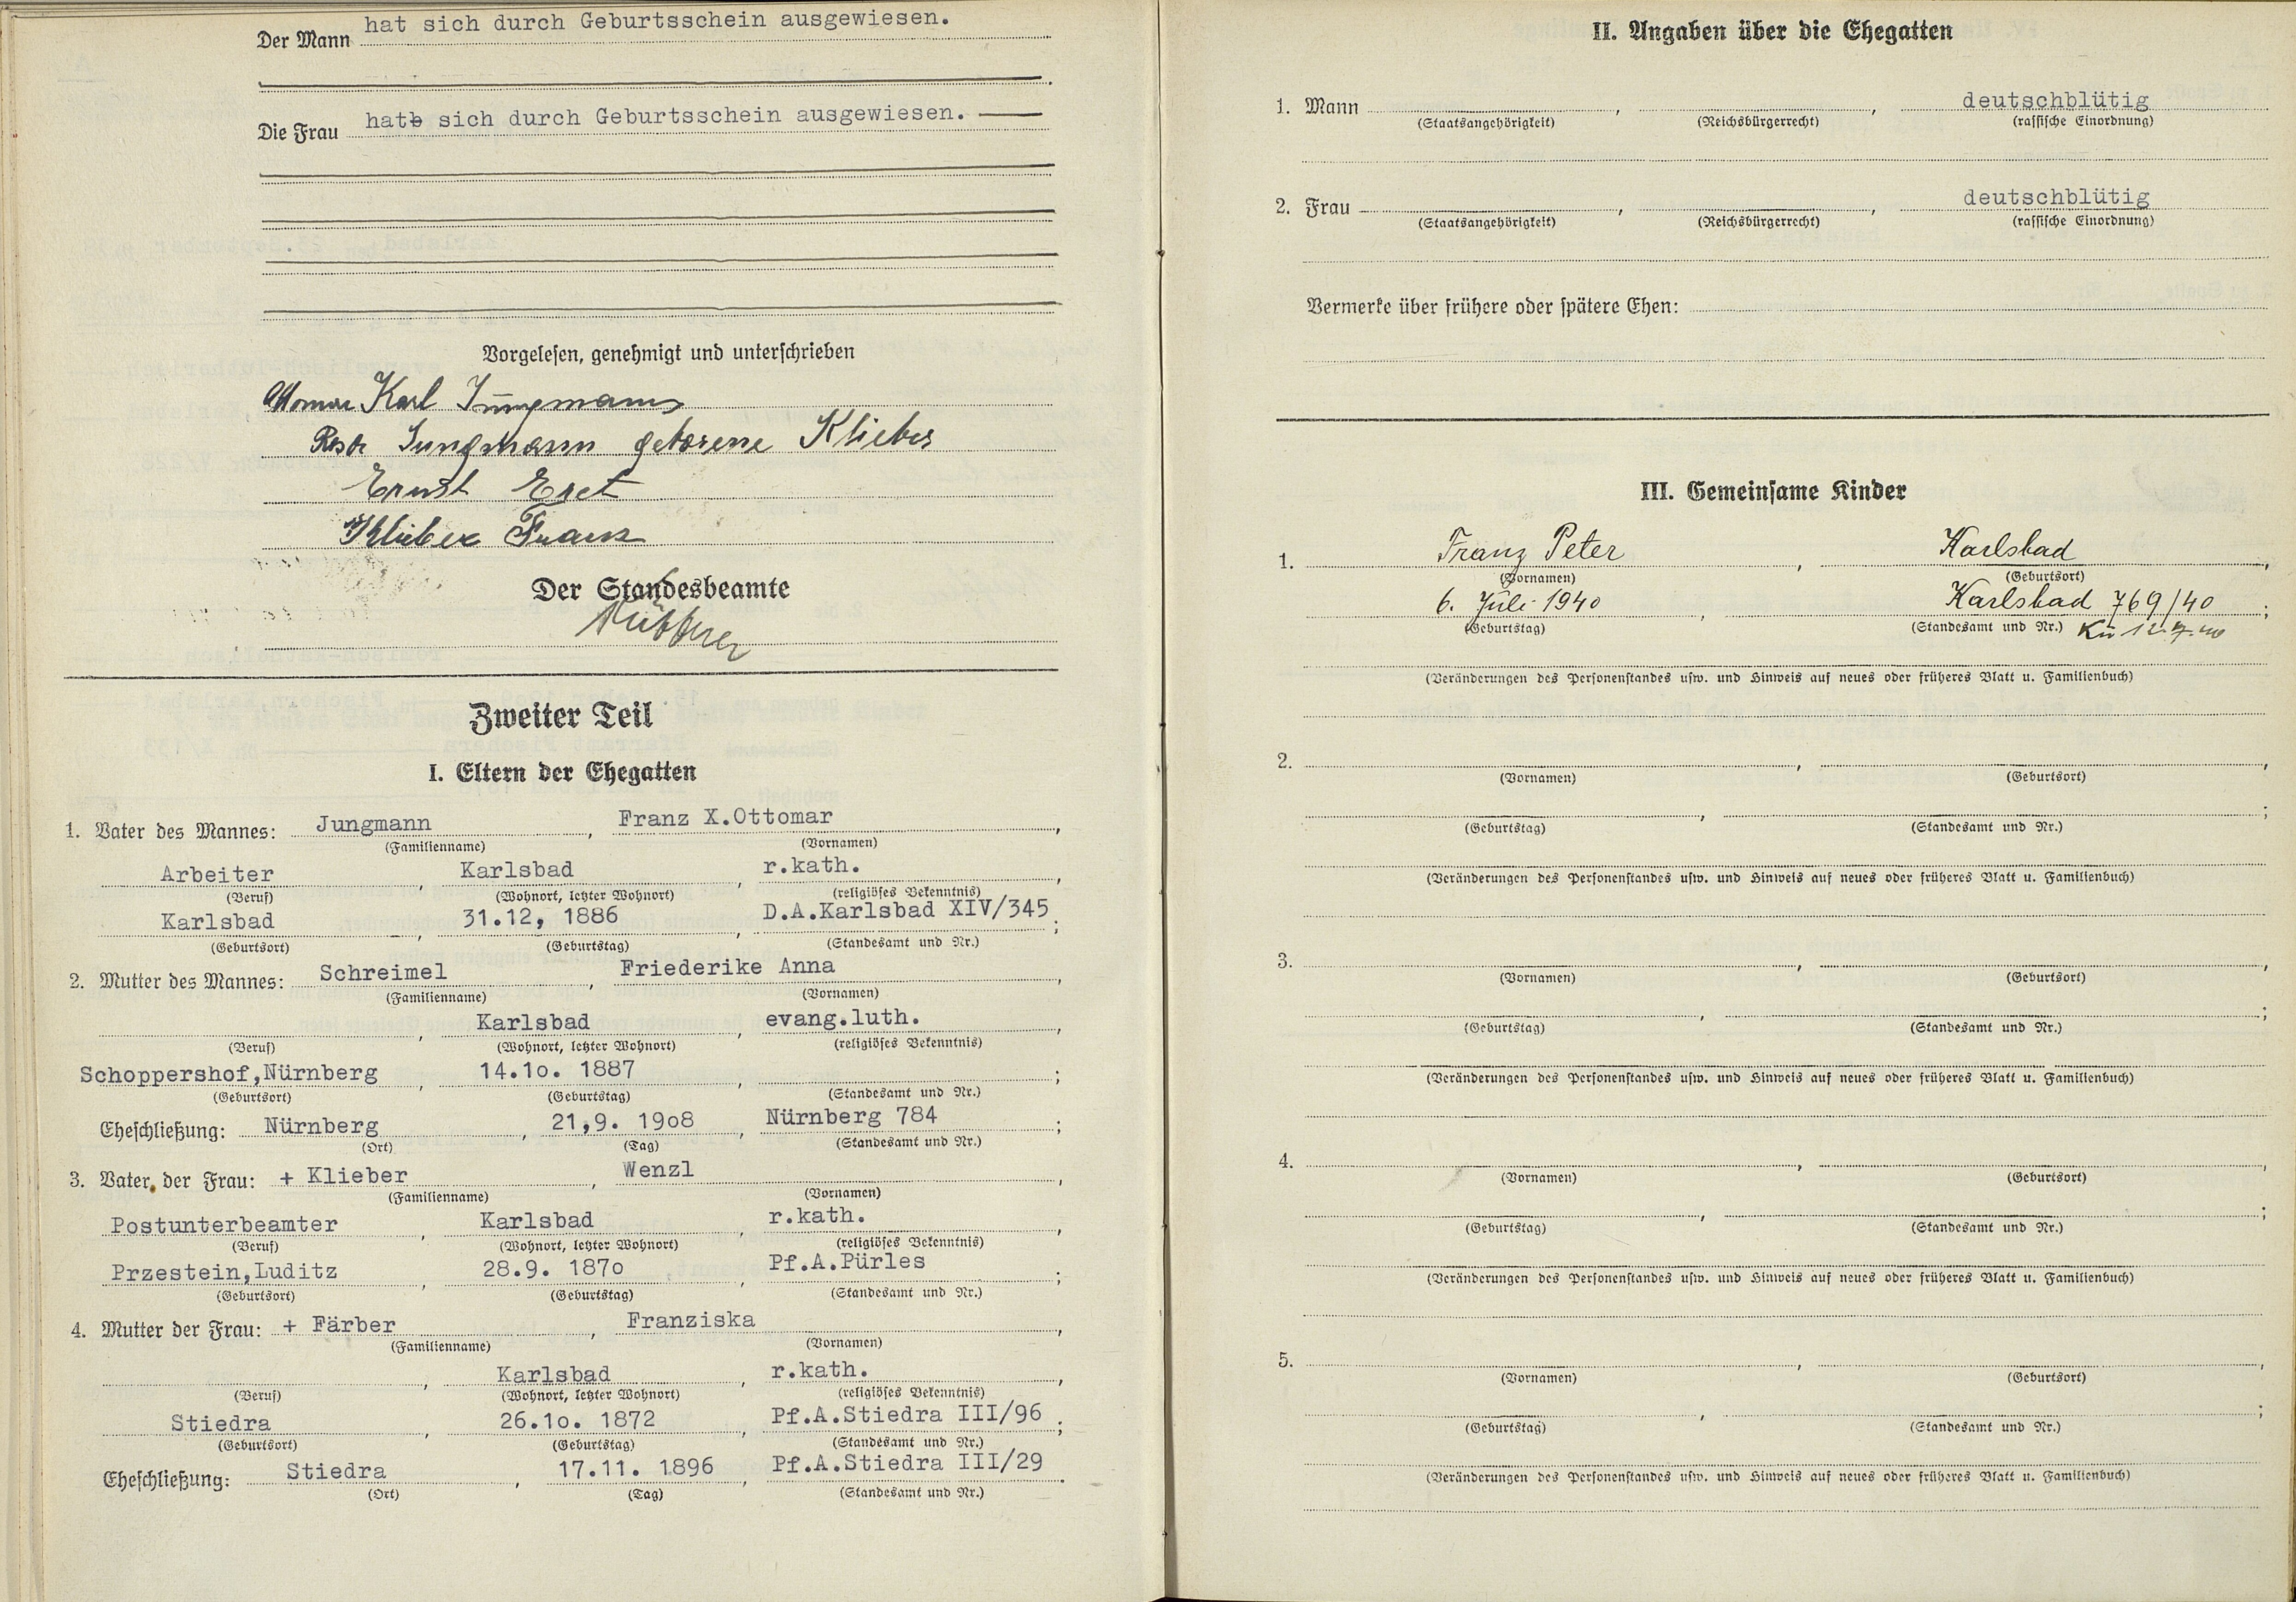 Der Mann hat sich durch Geburtsschein ausgewiesen.
Die Frau hatb sich durch Geburtsschein ausgewiesen.
Vorgelesen, genehmigt und unterschrieben
Karl Jungmann
Jungmann geborene Klieber
Ernst Eret
Klieber Franz
Der Standesbeamte
Zweiter Teil
I. Eltern der Ehegatten
1. Vater des Mannes: Jungmann, Franz X.Ottomar,
(Familienname) (Vornamen)
Arbeiter, Karlsbad, r.kath.,
(Beruf) (Wohnort, letzter Wohnort) (religiöses Bekenntnis)
Karlsbad, 31.12, 1886, D.A.Karlsbad XIV/345;
(Geburtsort) (Geburtstag) (Standesamt und Nr.)
2. Mutter des Mannes: Schreimel, Friederike Anna,
(Familienname) (Vornamen)
, Karlsbad, evang.luth.,
(Beruf) (Wohnort, letzter Wohnort) (religiöses Bekenntnis)
Schoppershof,Nürnberg, 14.1o. 1887, ;
(Geburtsort) (Geburtstag) (Standesamt und Nr.)
Eheschließung: Nürnberg, 21,9. 19o8, Nürnberg 784;
(Ort) (Tag) (Standesamt und Nr.)
3. Vater der Frau: + Klieber, Wenzl,
(Familienname) (Vornamen)
Postunterbeamter, Karlsbad, r.kath.,
(Beruf) (Wohnort, letzter Wohnort) (religiöses Bekenntnis)
Przestein,Luditz, 28.9. 187o, Pf.A.Pürles;
(Geburtsort) (Geburtstag) (Standesamt und Nr.)
4. Mutter der Frau: + Färber, Franziska,
(Familienname) (Vornamen)
, Karlsbad, r.kath.,
(Beruf) (Wohnort, letzter Wohnort) (religiöses Bekenntnis)
Stiedra, 26.1o. 1872, Pf.A.Stiedra III/96;
(Geburtsort) (Geburtstag) (Standesamt und Nr.)
Eheschließung: Stiedra, 17.11. 1896, Pf.A.Stiedra III/29.
(Ort) (Tag) (Standesamt und Nr.)
II. Angaben über die Ehegatten
1. Mann , , deutschblütig
(Staatsangehörigkeit) (Reichsbürgerrecht) (rassische Einordnung)
2. Frau , , deutschblütig
(Staatsangehörigkeit) (Reichsbürgerrecht) (rassische Einordnung)
Vermerke über frühere oder spätere Ehen:
III. Gemeinsame Kinder
1. Franz Peter, Karlsbad,
(Vornamen) (Geburtsort)
6. Juli 1940, Karlsbad 769/40;
(Geburtstag) (Standesamt und Nr.)
(Veränderungen des Personenstandes usw. und Hinweis auf neues oder früheres Blatt u. Familienbuch)
2. , ,
(Vornamen) (Geburtsort)
, ;
(Geburtstag) (Standesamt und Nr.)
(Veränderungen des Personenstandes usw. und Hinweis auf neues oder früheres Blatt u. Familienbuch)
3. , ,
(Vornamen) (Geburtsort)
, ;
(Geburtstag) (Standesamt und Nr.)
(Veränderungen des Personenstandes usw. und Hinweis auf neues oder früheres Blatt u. Familienbuch)
4. , ,
(Vornamen) (Geburtsort)
, ;
(Geburtstag) (Standesamt und Nr.)
(Veränderungen des Personenstandes usw. und Hinweis auf neues oder früheres Blatt u. Familienbuch)
5. , ,
(Vornamen) (Geburtsort)
, ;
(Geburtstag) (Standesamt und Nr.)
(Veränderungen des Personenstandes usw. und Hinweis auf neues oder früheres Blatt u. Familienbuch)